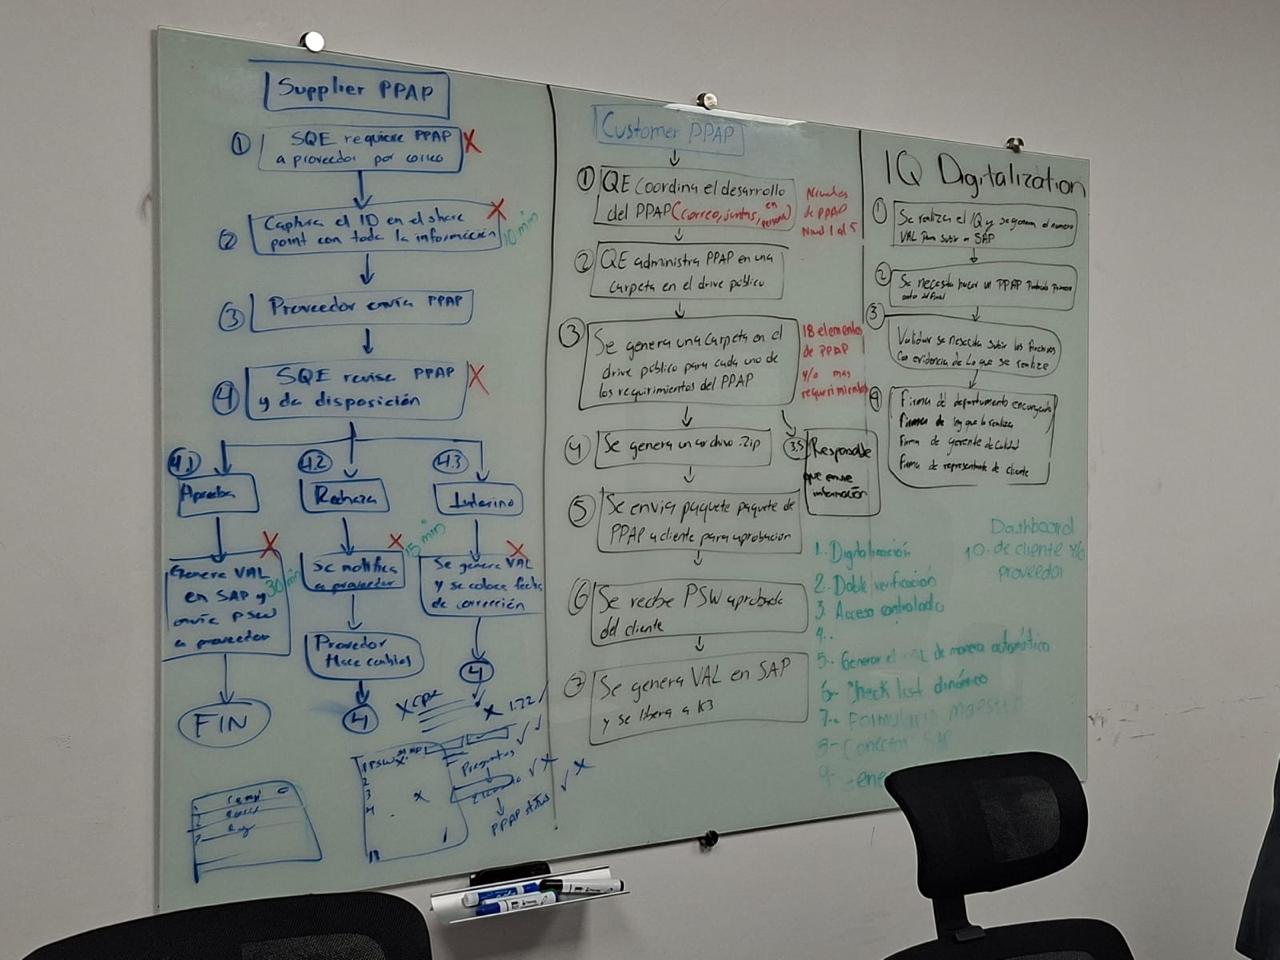 Supplier PPAP
1 SQE requiere PPAP X
a proveedor por correo
2 Captura el ID en el share X
point con toda la información 10 min
3 Proveedor envía PPAP
4 SQE revisa PPAP X
y da disposición
4.1 4.2 4.3
Aprueba
Rechaza
Interino
X
Genera VAL
en SAP y 30 min
envía PSW
a proveedor
FIN
X 15 min
Se notifica
a proveedor
Proveedor
Hace cambios
4
X
Se genera VAL
y se coloca fecha
de corrección
4
X CPK
X 1.72
1 PSW X
2
3 X
4
18
Preguntas
PPAP
Customer PPAP
1 QE Coordina el desarrollo
del PPAP (correo, juntas, en
persona)
de PPAP
Nivel 1 al 5
2 QE administra PPAP en una
carpeta en el drive público
3 Se genera una carpeta en el
drive público para cada uno de
los requirimientos del PPAP
18 elementos
de PPAP
y/o mas
requerimientos
4 Se genera un archivo .Zip
3.5 Responsable
que envie
información
5 Se envia paquete paquete de
PPAP a cliente para aprobación
6 Se recibe PSW aprobada
del cliente
7 Se genera VAL en SAP
y se libera a K3
IQ Digitalization
1 Se realiza el IQ y se genera el numero
VAL Para subir a SAP
2 Se necesita hacer un PPAP
antes del final
3 Validar se necesita subir los Archivos
Con evidencia de Lo que se realize
4 Firma de departamento encargado
Firma de ing que lo realiza
Firma de gerente de Calidad
Firma de representante de cliente
1. Digitalización
2. Doble verificación
3. Acceso controlado
4.
5. Generar el VAL de manera automática
6- Check list dinámico
7.- Formulario Maestro
8- Conector SAP
9-
Dashboard
10. de cliente y/o
proveedor